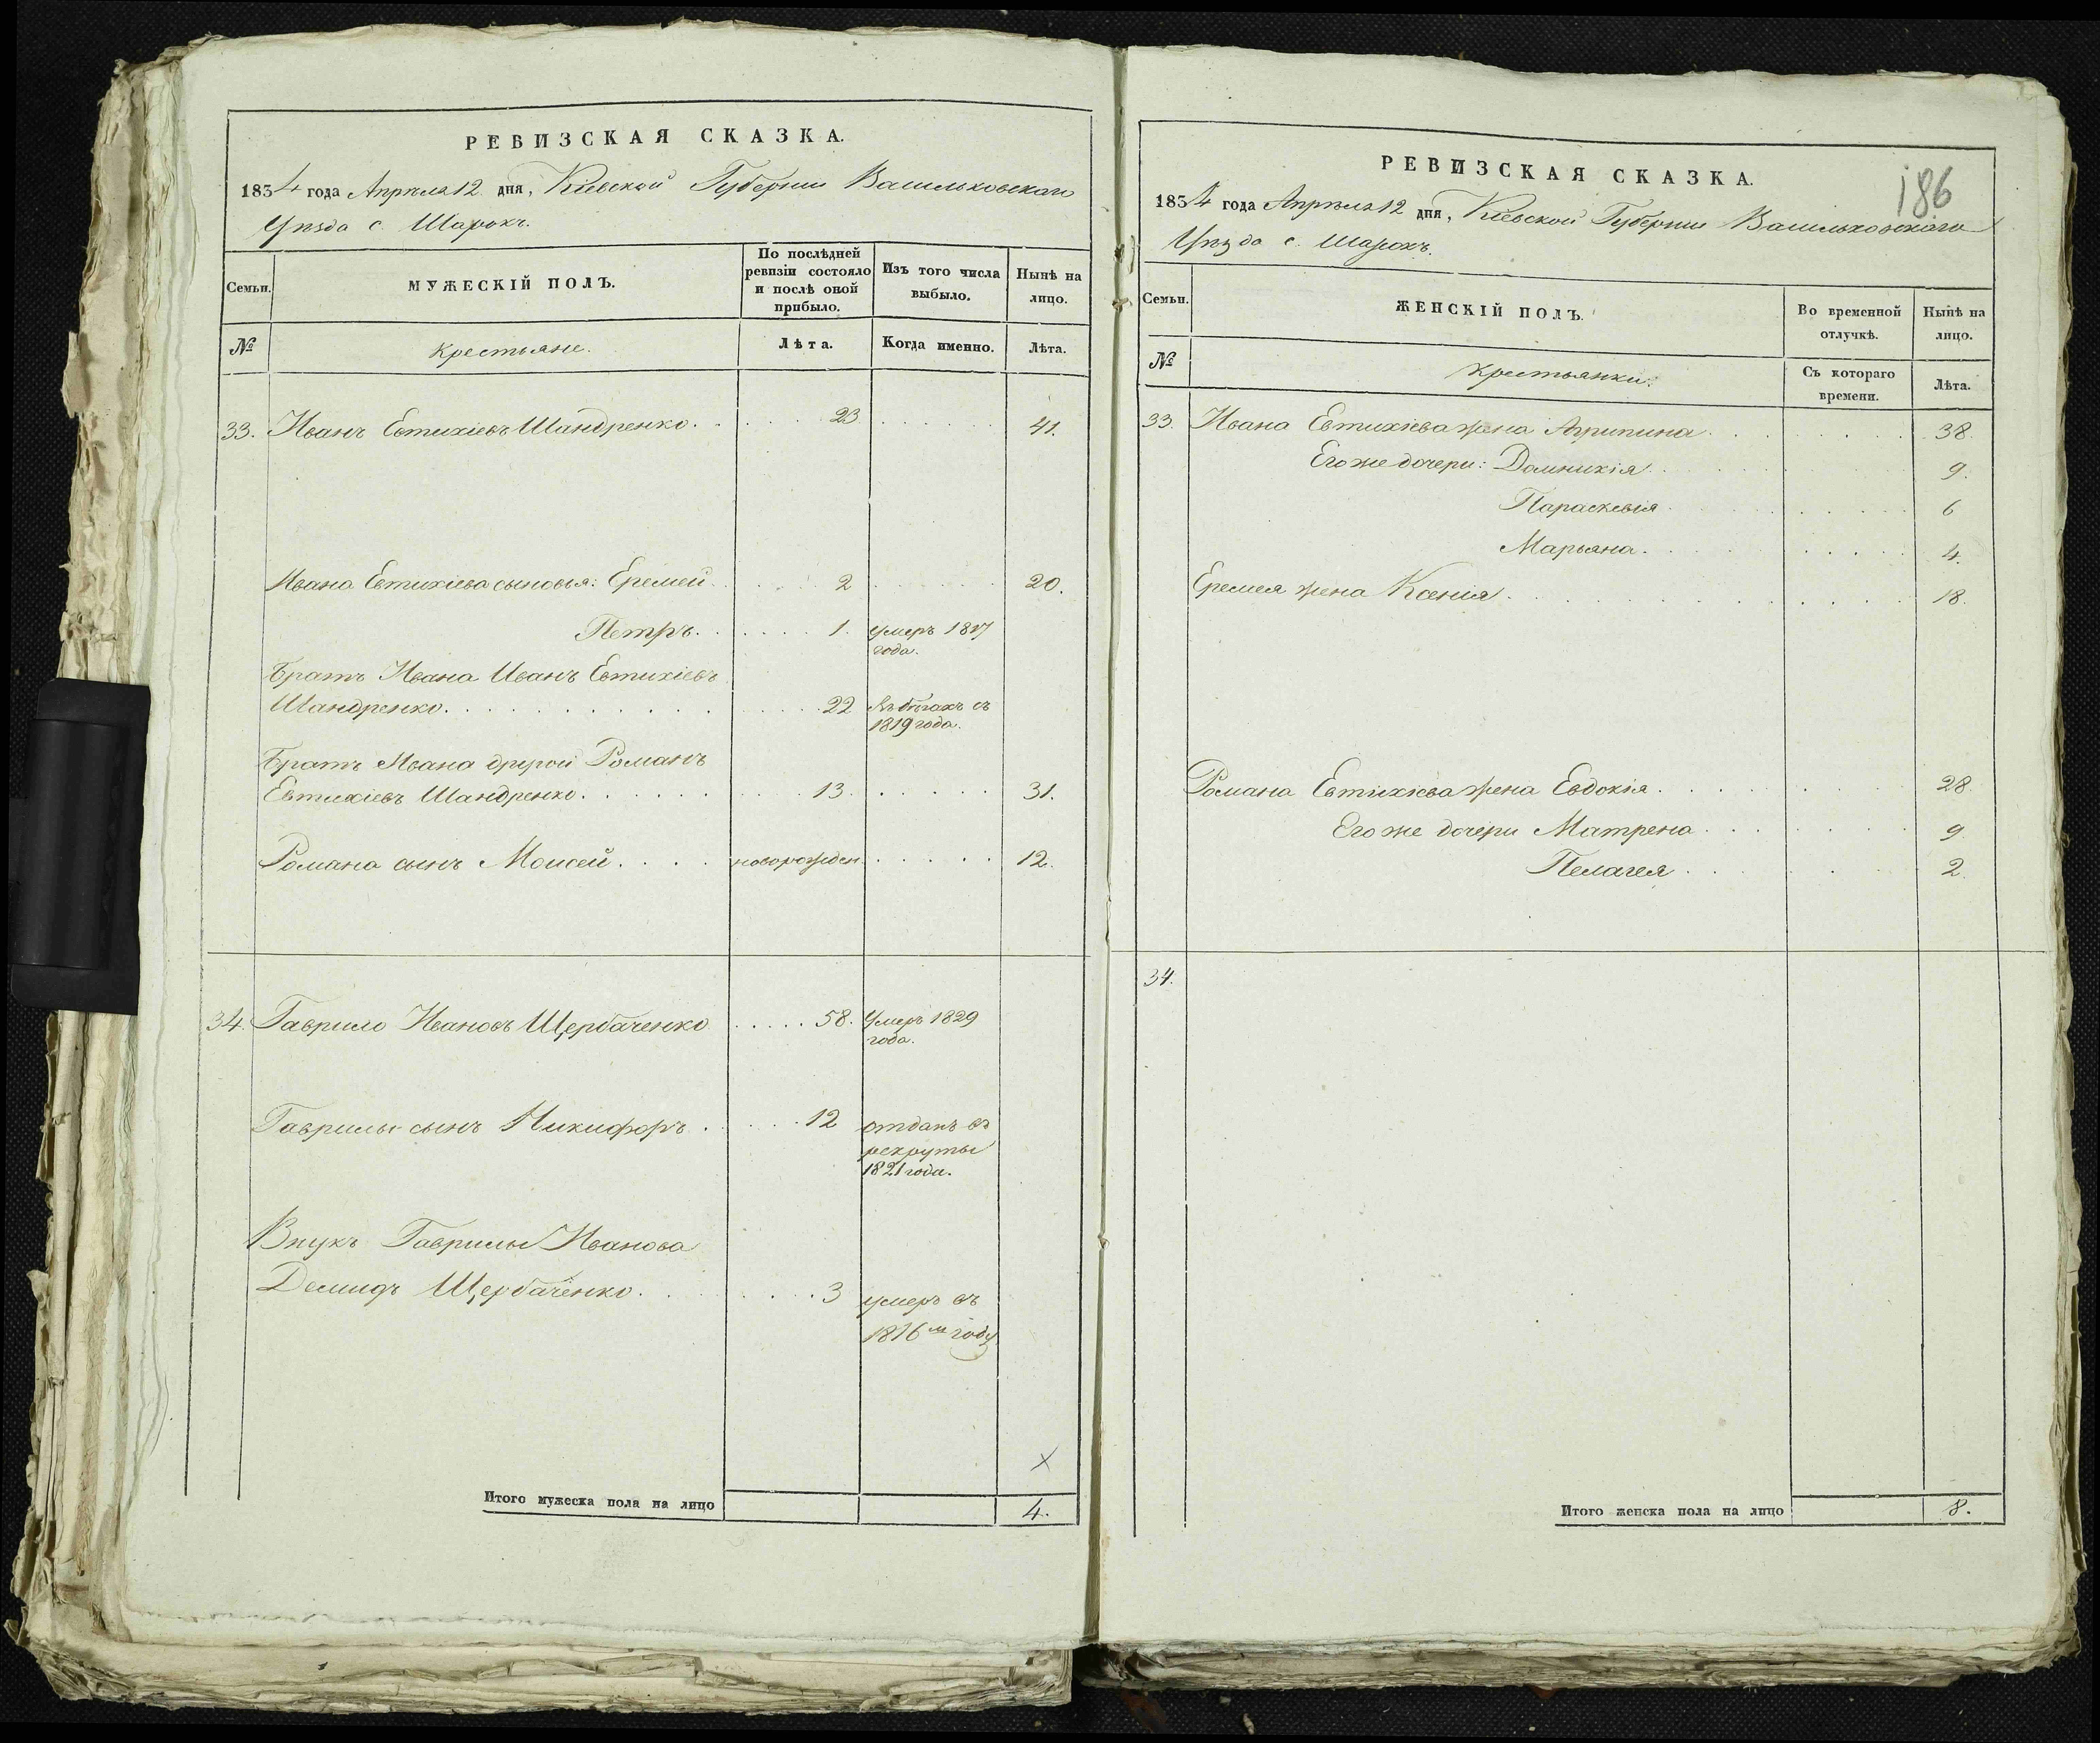 РЕВИЗСКАЯ СКАЗКА.
1834 года Апрѣля 12 дня, Кіевской Губерніи Васильковскаго
Уѣзда с. Шарокъ.
Семьи.
МУЖЕСКІЙ ПОЛЪ.
По послѣдней ревизіи состояло и послѣ оной прибыло.
Изъ того числа выбыло.
Нынѣ на лицо.
№
Крестьяне.
Лѣта.
Когда именно.
Лѣта.
33. Иванъ Евтихіевъ Шандренко. 23 41.
Ивана Евтихіева сыновья: Еремей 2 20.
Петръ. 1. умеръ 1817
года.
Братъ Ивана Иванъ Евтихіевъ
Шандренко. 22 въ бѣгахъ съ
1819 года.
Братъ Ивана другой Романъ
Евтихіевъ Шандренко. 13. 31.
Романа сынъ Моисей. новорожден. 12.
34. Гаврило Ивановъ Щербаченко 58. Умеръ 1829
года.
Гаврилы сынъ Никифоръ. 12 отданъ въ
рекруты
1821 года.
Внукъ Гаврилы Иванова
Демидъ Щербаченко. 3 умеръ въ
1816м году
Итого мужеска пола на лицо 4.
186
РЕВИЗСКАЯ СКАЗКА.
1834 года Апрѣля 12 дня, Кіевской Губерніи Васильковскаго
Уѣзда с. Шарокъ.
Семьи.
ЖЕНСКІЙ ПОЛЪ.
Во временной отлучкѣ.
Нынѣ на лицо.
№
Крестьянки.
Съ котораго времени.
Лѣта.
33. Ивана Евтихіева жена Агрипина 38.
Его же дочери: Домникія 9.
Параскевія 6
Марьяна. 4.
Еремея жена Ксенія 18.
Романа Евтихіева жена Евдокія. 28
Его же дочери Матрена 9
Пелагея 2.
34.
Итого женска пола на лицо 8.